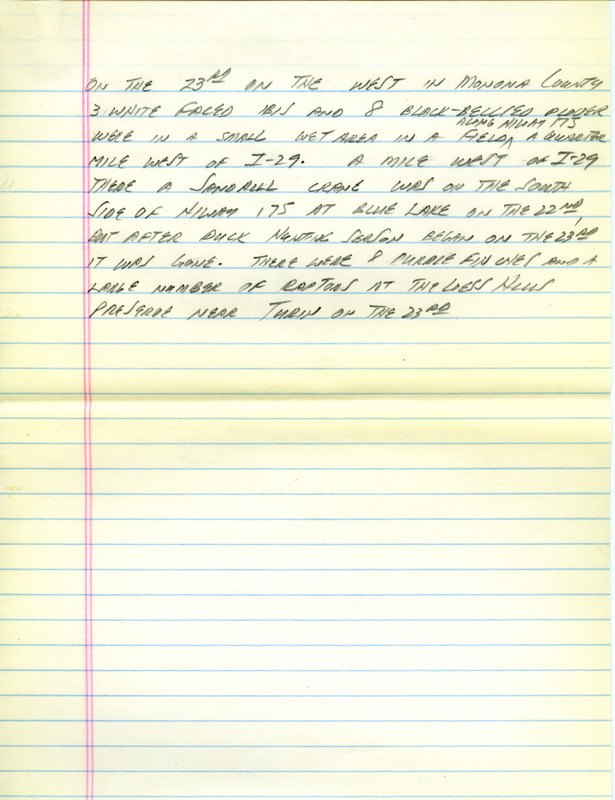 ON THE 23RD ON THE WEST IN MONONA COUNTY
3 WHITE FACED IBIS AND 8 BLACK-BELLIED PLOVER
ALONG HIWAY 175
WERE IN A SMALL WET AREA IN A FIELD, A QUARTER
MILE WEST OF I-29. A MILE WEST OF I-29
THERE A SANDHILL CRANE WAS ON THE SOUTH
SIDE OF HIWAY 175 AT BLUE LAKE ON THE 22ND,
BUT AFTER DUCK HUNTING SEASON BEGAN ON THE 23RD
IT WAS GONE. THERE WERE 8 PURPLE FINCHES AND A
LARGE NUMBER OF RAPTORS AT THE LOESS HILLS
PRESERVE NEAR TURIN ON THE 23RD